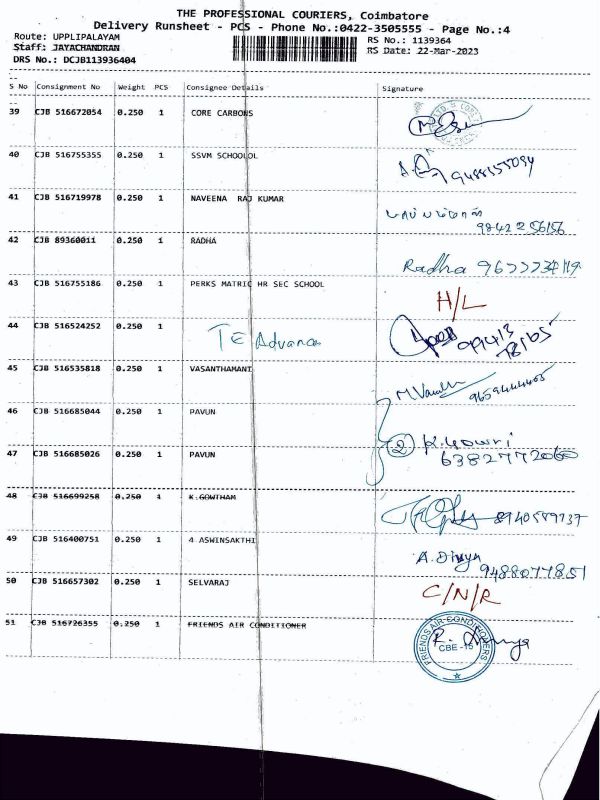 THE PROFESSIONAL COURIERS, Coimbatore
Delivery Runsheet - PCS - Phone No.:0422-3505555 - Page No.:4
Route: UPPLIPALAYAM RS No.: 1139364
Staff: JAYACHANDRAN RS Date: 22-Mar-2023
DRS No.: DCJB113936404
S No Consignment No Weight PCS Consignee Details Signature
39 CJB 516672054 0.250 1 CORE CARBONS
40 CJB 516755355 0.250 1 SSVM SCHOOLOL 9488155094
41 CJB 516719978 0.250 1 NAVEENA RAJ KUMAR
9842256156
42 CJB 89360011 0.250 1 RADHA
Radha
43 CJB 516755186 0.250 1 PERKS MATRIC HR SEC SCHOOL
H/L
44 CJB 516524252 0.250 1
TE Advance
45 CJB 516535818 0.250 1 VASANTHAMANI
9659444405
46 CJB 516685044 0.250 1 PAVUN
2 K.Gowri
47 CJB 516685026 0.250 1 PAVUN
6382772060
48 CJB 516699258 0.250 1 K.GOWTHAM
49 CJB 516400751 0.250 1 4 ASWINSAKTHI
A.Divya
9488077851
50 CJB 516657302 0.250 1 SELVARAJ
C/N/R
51 CJB 516726355 0.250 1 FRIENDS AIR CONDITIONER
FRIENDS AIR CONDITIONERS
CBE-15